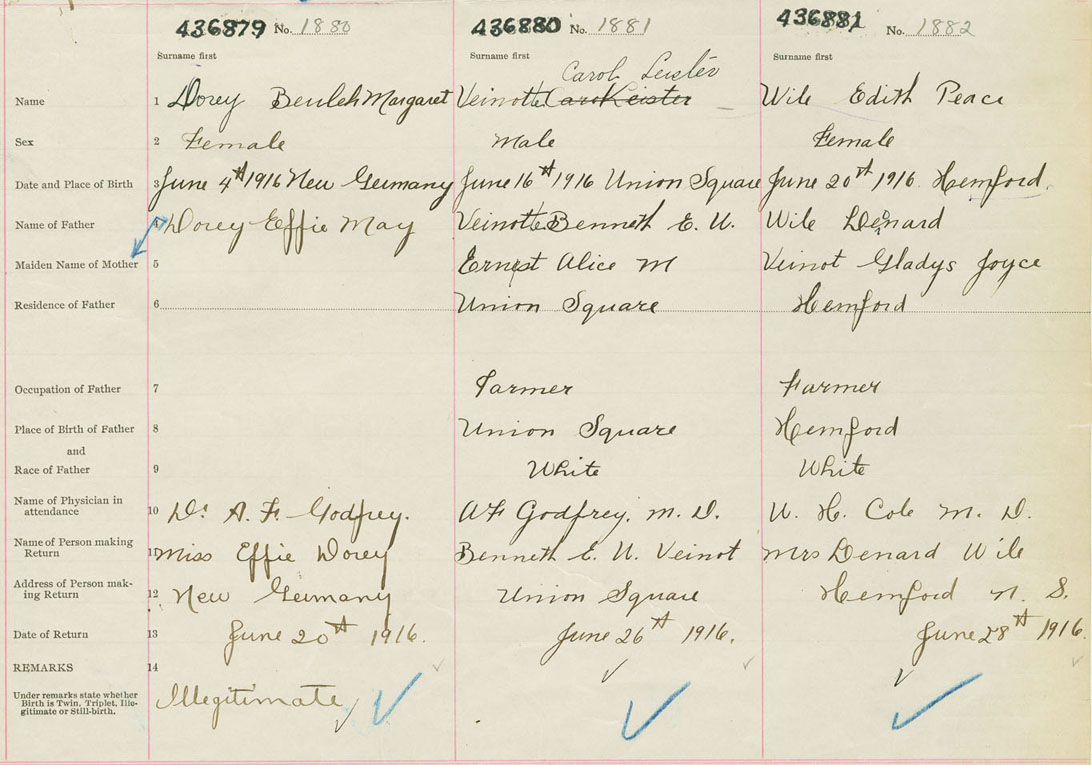 436879 No. 1880 436880 No. 1881 436881 No. 1882
Surname first Surname first Surname first
Carol Leister
Name 1 Dorey Beulah Margaret Veinotte Carol Leister Wile Edith Peace
Sex 2 Female Male Female
Date and Place of Birth 3 June 4th 1916 New Germany June 16th 1916 Union Square June 20th 1916. Hemford.
Name of Father 4 Dorey Effie May Veinotte Bennett E. U. Wile Denard
Maiden Name of Mother 5 Ernest Alice M Veinot Gladys Joyce
Residence of Father 6 Union Square Hemford
Occupation of Father 7 Farmer Farmer
Place of Birth of Father 8 Union Square Hemford
and
Race of Father 9 White White
Name of Physician in
attendance 10 Dr A. F. Godfrey. A F Godfrey. M. D. W. H. Cole M. D.
Name of Person making
Return 11 Miss Effie Dorey Bennett E. U. Veinot Mrs Denard Wile
Address of Person mak-
ing Return 12 New Germany Union Square Hemford N. S.
Date of Return 13 June 20th 1916. June 26th 1916. June 28th 1916.
REMARKS 14
Under remarks state whether
Birth is Twin, Triplet, Ille-
gitimate or Still-birth.
Illegitimate